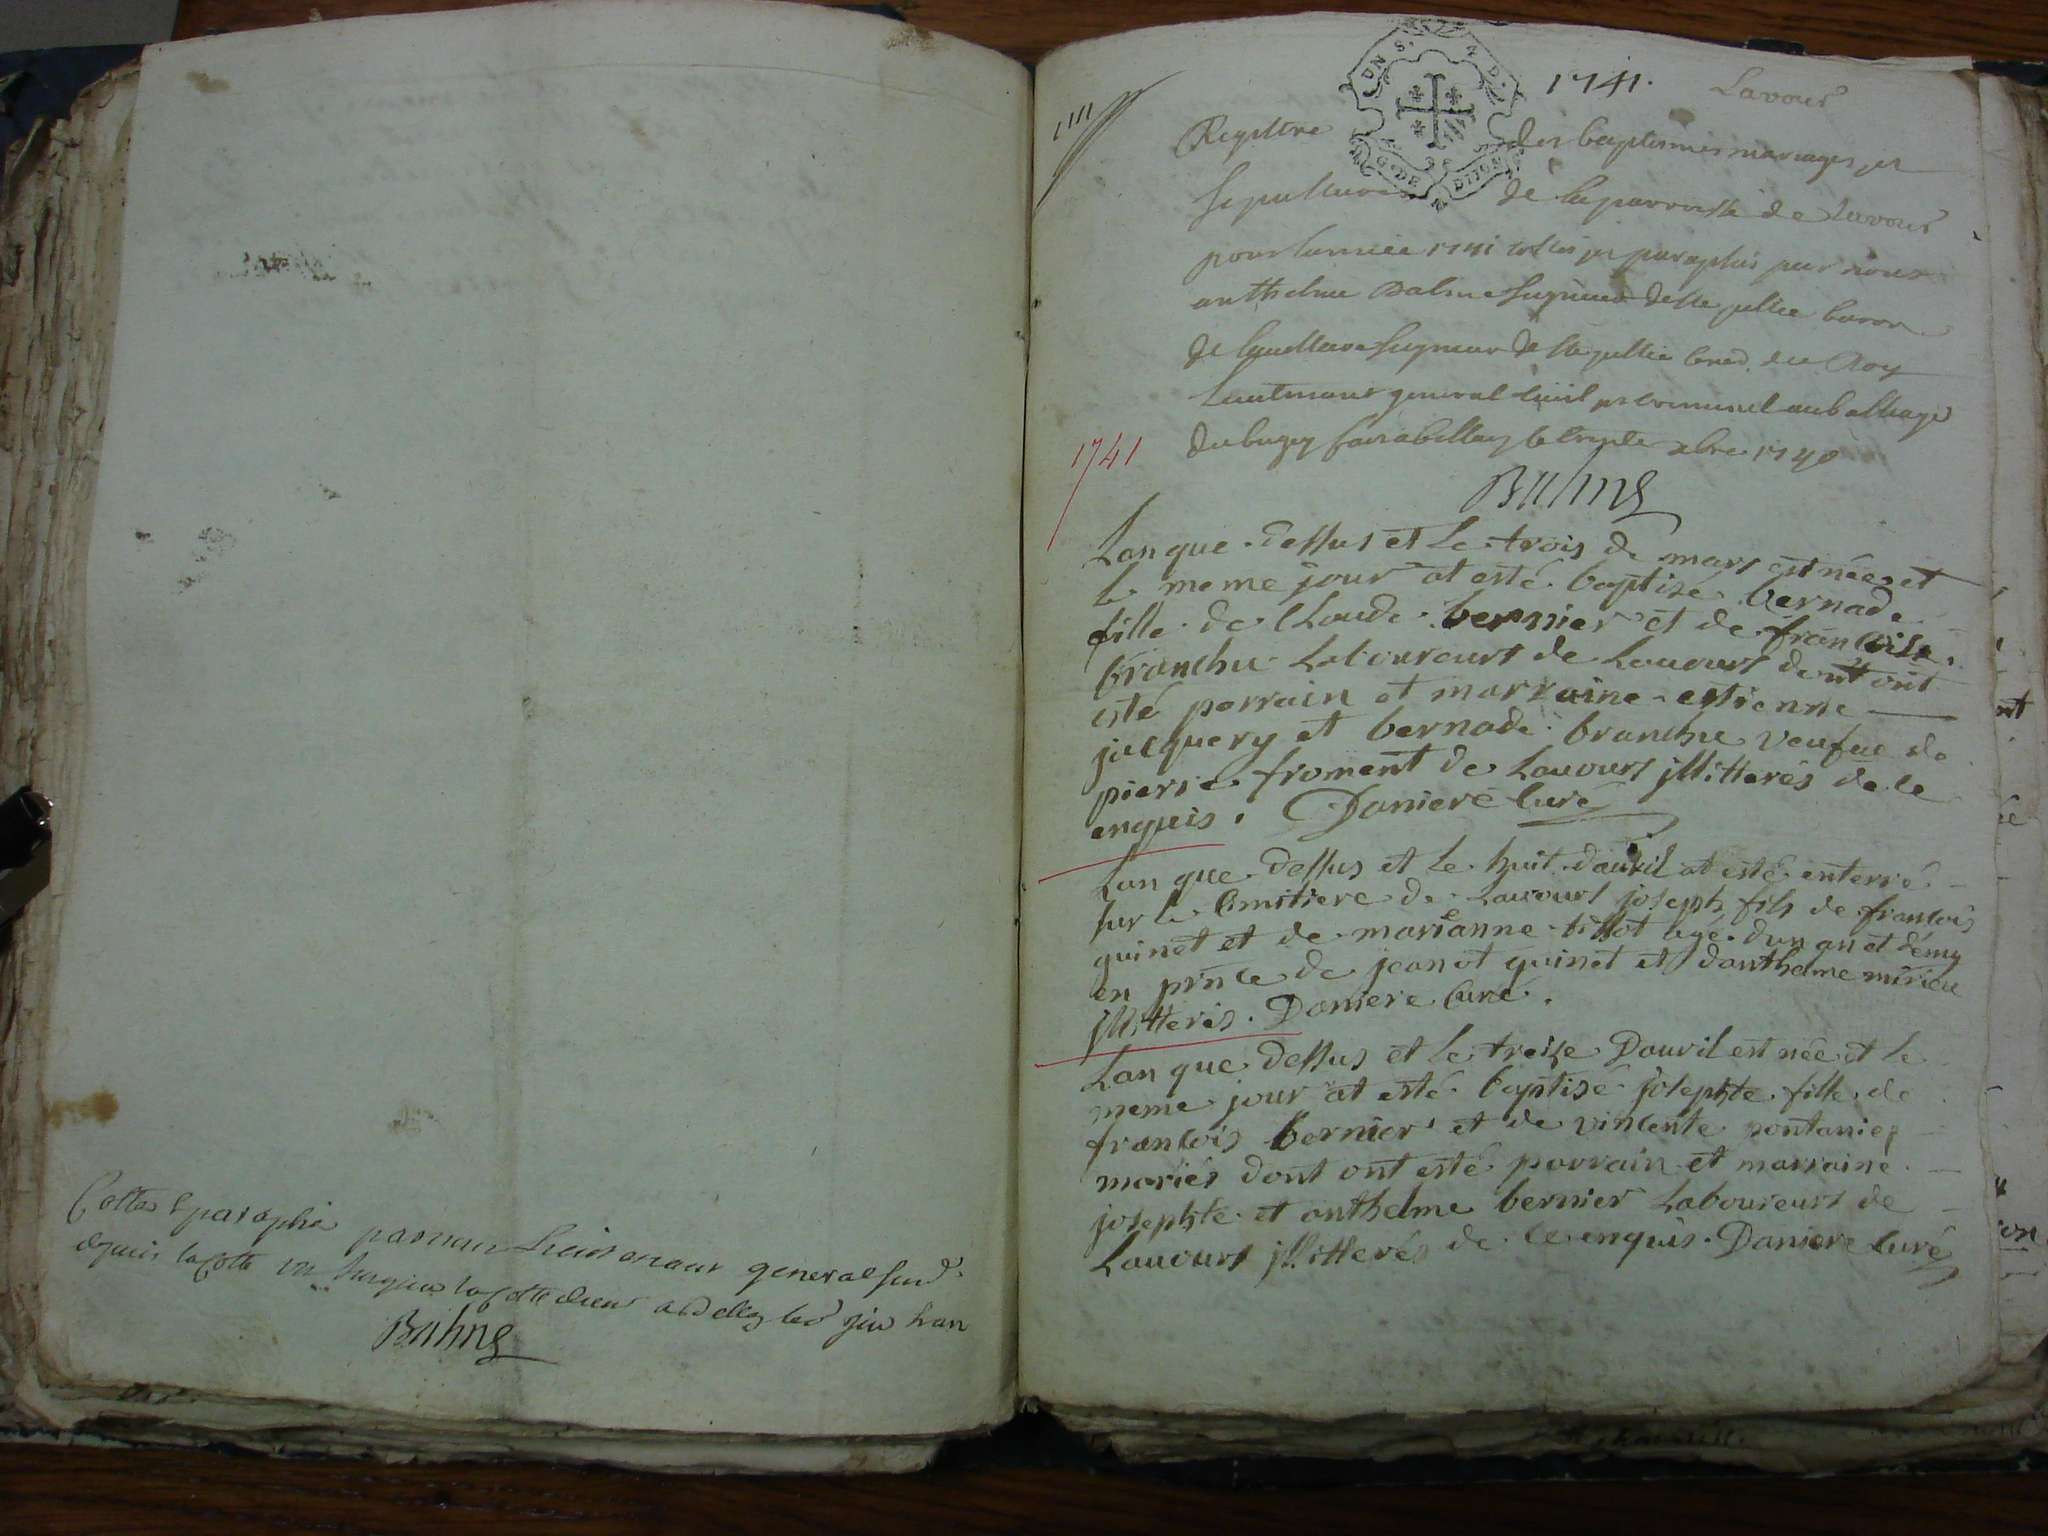 Cottes & paraphé par nous Lieutenant general susd.
depuis la cotte un jusques la cotte
Balme
1741. Lavour
UN S. 4 D.
G. DE DIJON
Registre des baptesmes mariages et
sepulture de la parroisse de Lavour
pour lannée 1741 cottés et paraphés par nous
anthelme Balme seigneur de Ste jullie baron
de seigneur de Ste jullie Cons. du Roy
Lieutenant general civil et criminel au balliage
du bugey fait a belley le trente xbre 1740
Balme
1741
Lan que dessus et le trois de mars est née et
le meme jour at esté baptisé bernade
fille de Claude bernier et de francoise
branche Laboureurs de Lavours dont ont
esté parrain et marraine estienne
jacquery et bernade branche veufue de
pierre froment de Lavours jllitterés de ce
enquis. Daniere Curé
Lan que dessus et le huit dauril at esté enterré
sur le Cimitiere de Lavours joseph fils de francois
guinet et de marianne billot age dun an et démy
en pnce de jeanot guinet et danthelme mirieu
jllitterés. Daniere Curé.
Lan que dessus et le treize Dauril est née et le
meme jour at esté baptisé josephte fille de
francois bernier et de vincente pontanier
mariés dont ont esté parrain et marraine
josephte et anthelme bernier Laboureurs de
Lavours jllitterés de ce enquis. Daniere Curé